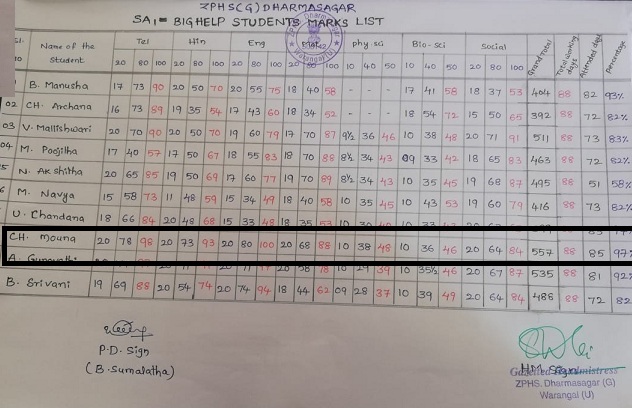 ZPHS(G) DHARMASAGAR
SA1 = BIGHELP STUDENTS MARKS LIST
Name of the Student Tel Hin Eng phy sci Bio-sci Social Grand Total Total working days Attended days Percentage
20 80 100 20 50 70 20 80 100 20 80 100 10 40 50 10 40 50 20 80 100
B. Manusha 17 73 90 20 50 70 20 55 75 18 40 58 - - - 17 41 58 18 37 53 404 88 82 93%
02 CH. Archana 16 73 89 19 35 54 17 43 60 18 34 52 - - - 18 54 72 15 50 65 392 88 72 82%
03 V. Mallishwari 20 70 90 20 50 70 19 60 79 17 70 87 9½ 36 46 10 38 48 20 71 91 511 88 73 83%
04 M. Poojitha 17 40 57 17 50 67 18 55 83 18 70 88 8½ 34 43 09 33 42 18 65 83 463 88 72 82%
N. Akshitha 20 65 85 19 50 69 17 60 77 19 70 89 8½ 34 43 10 35 45 19 68 87 495 88 51 58%
M. Navya 15 58 73 11 48 59 15 34 49 18 40 58 10 35 45 10 43 53 19 60 79 416 88 73 82%
U. Chandana 18 66 84 20 48 68 15 33 48 18 35 53
CH. Mouna 20 78 98 20 73 93 20 80 100 20 68 88 10 38 48 10 36 46 20 64 84 557 88 85 97%
20 58 78 10 29 39 10 35½ 46 20 67 87 535 88 81 92%
B. Srivani 19 69 88 20 54 74 20 74 94 18 44 62 09 28 37 10 39 49 20 64 84 488 88 72 82
P.D. Sign
(B. Sumalatha)
HM. Sign
Gazetted Headmistress
ZPHS. Dharmasagar (G)
Warangal (U)